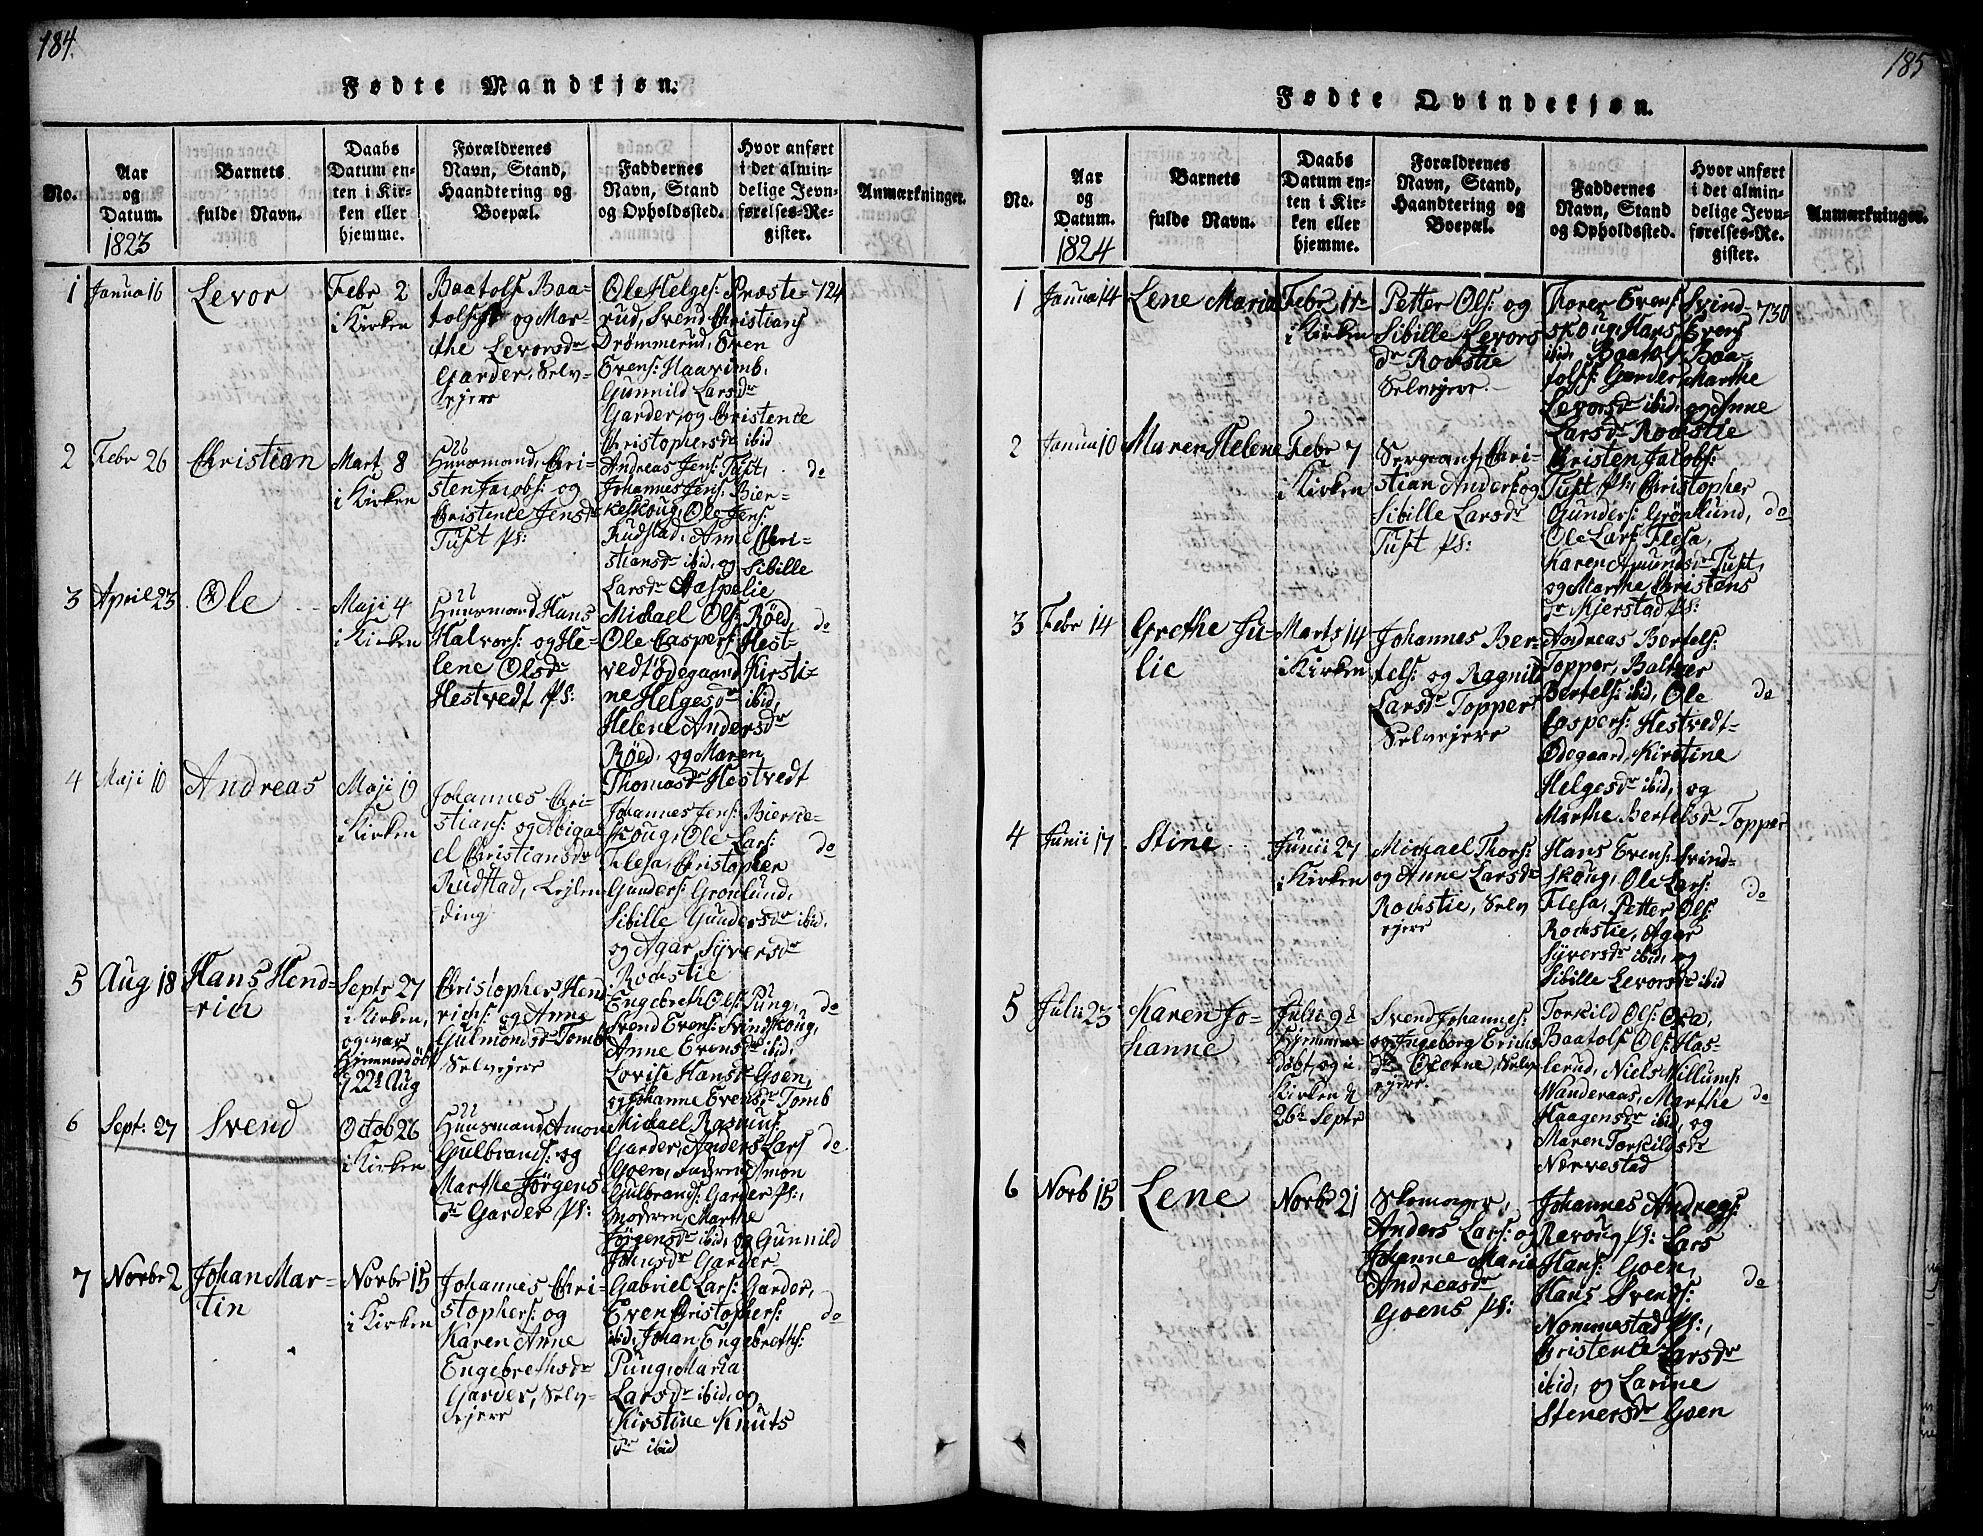 184.
Fødte Mandkjøn.
No.
Aar
og
Datum.
1823
Barnets
fulde Navn.
Daabs
Datum en-
ten i Kir-
ken eller
hjemme.
Forældrenes
Navn, Stand,
Haandtering og
Boepæl.
Faddernes
Navn, Stand
og Opholdssted.
Hvor anført
i det almin-
delige Jevn-
førelses-Re-
gister.
Anmærkninger.
1
Janua 16
Levor
Febr 2
i Kirken
Baatolf Baa-
tolfs: og Mar-
the Levorsdr
Garder, Selv-
ejere
Ole Helges: Præste-
rud, Svend Christians
Drømmerud, Even
Evens: Haavimb,
Gunnild Larsdr
Garder, og Christence
Christophersdr ibid
724
2
Febr 26
Christian
Mart 8
i Kirken
Huusmand, Chri-
sten Jacobs: og
Christence Jensdr
Tuft Ps:
Andreas Jens: Tuft,
Johannes Jens: Bier-
keskoug, Ole Jens:
Rudstad, Anne Chri-
stiansdr ibid, og Sibille
Larsdr Aaspelie
do
3
April 23
Ole
Maji 4
i Kirken
Huusmand Hans
Halvors: og He-
lene Olsdr
Hestvedt Ps:
Michael Ols: Røed,
Ole Caspers: Hest-
vedtødegaard, Kirsti-
ne Helgesdr ibid,
Helene Andersdr
Røed, og Maren
Thomasdr Hestvedt
do
4
Maji 10
Andreas
Maji 19
i Kirken
Johannes Chri-
stians: og Abiga-
el Christiansdr
Rudstad, Lejlen-
ding
Johannes Jens: Bierke-
skoug, Ole Lars:
Flesa, Christopher
Gunders: Grønlund,
Sibille Gundersdr ibid,
og Agar Syversdr
Rockstie
do
5
Aug 18
Hans Hend-
rich
Septr 27
i Kirken,
og var
hjemmedøbt
d 22d Aug
Christopher Hend
richs: og Anne
Gulmondsdr Tomb
Selvejere
Engebreth Ols: Pung,
Svend Evens: Svindskoug,
Anne Evensdr ibid,
Lovise Hansdr Goen,
og Johanne Evensdr Tomb
do
6
Septr: 27
Svend
Octob 26
i Kirken
Huusmand Amon
Gulbrands: og
Marthe Jörgens
dr Garder Ps:
Michael Rasmus:
Garder, Anders Lars
Goen, Faderen Amon
Gulbrands: Garder Ps:,
Moderen, Marthe
Jörgensdr ibid, og Gunnild
Johnsdr Garder
do
7
Novbr 2
Johan Mar-
tin
Novbr 15
i Kirken
Johannes Chri-
stophers: og
Karen Anne
Engebrethsdr
Garder, Selv-
ejere
Gabriel Lars: Garder,
Even Christophers:
ibid, Johan Engebreths:
Pung, Maria
Larsdr ibid, og
Kirstine Knuts
dr ibid
do
185
Fødte Qvindekjøn.
No.
Aar
og
Datum.
1824
Barnets
fulde Navn.
Daabs
Datum en-
ten i Kir-
ken eller
hjemme.
Forældrenes
Navn, Stand,
Haandtering og
Boepæl.
Faddernes
Navn, Stand
og Opholdssted.
Hvor anført
i det almin-
delige Jevn-
førelses-Re-
gister.
Anmærkninger.
1
Janua 14
Lene Maria
Febr 1ste
i Kirken
Petter Ols: og
Sibille Levors
dr Rockstie
Selvejere
Thorer Evens: Svind-
skoug, Hans Evens
ibid, Baatolf Baa-
tolfs: Garder, Marthe
Levorsdr ibid, og Anne
Larsdr Rockstie
730
2
Janua 10
Maren Helene
Febr 7
i Kirken
Sergeant, Chri-
stian Anders: og
Sibille Larsdr
Tuft Ps:
Christen Jacobs:
Tuft Ps:, Christopher
Gunders: Grönlund,
Ole Lars: Flesa,
Karen Amundsdr Tuft,
og Marthe Christens
dr Mjerstad Ps:
do
3
Febr 14
Grethe Ju-
lie
Marts 14
i Kirken
Johannes Ber-
tels: og Ragnild
Larsdr Topper
Selvejere
Andreas Bertels:
Topper, Baltzer
Bertels: ibid, Ole
Caspers: Hestvedt-
ødegaard, Kirstine
Helgesdr ibid, og
Marthe Bertelsdr Topper
do
4
Junii 17
Stine
Junii 27
i Kirken
Michael Thors:
og Anne Larsdr
Rockstie, Selv
ejere
Hans Evens: Svind-
skoug, Ole Lars:
Flesa, Petter Ols:
Rockstie, Agar
Syversdr ibid, og
Sibille Levorsdr ibid
do
5
Julii 23
Karen Jo-
hanne
Julii 9d
hjemme-
døbt, og i
Kirken d
26d Septr
Svend Johannes:
og Ingeborg Erichs
dr Oxerne, Selv
ejere.
Torkild Ols: Oxa,
Baatolf Ols: Has-
lerud, Niels Willums:
Wanderaas, Marthe
Haagensdr ibid, og
Maren Torkildsdr
Nærvestad
do
6
Novb 15
Lene
Novbr 21
Skomager,
Anders Lars: og
Johanne Maria
Andreasdr
Goens Ps:
Johannes Andreas:
Revoug Ps: Lars
Hans: Goen,
Hans Svends:
Nommestad Ps:,
Christence Larsdr
ibid, og Larine
Stenersdr Goen
do